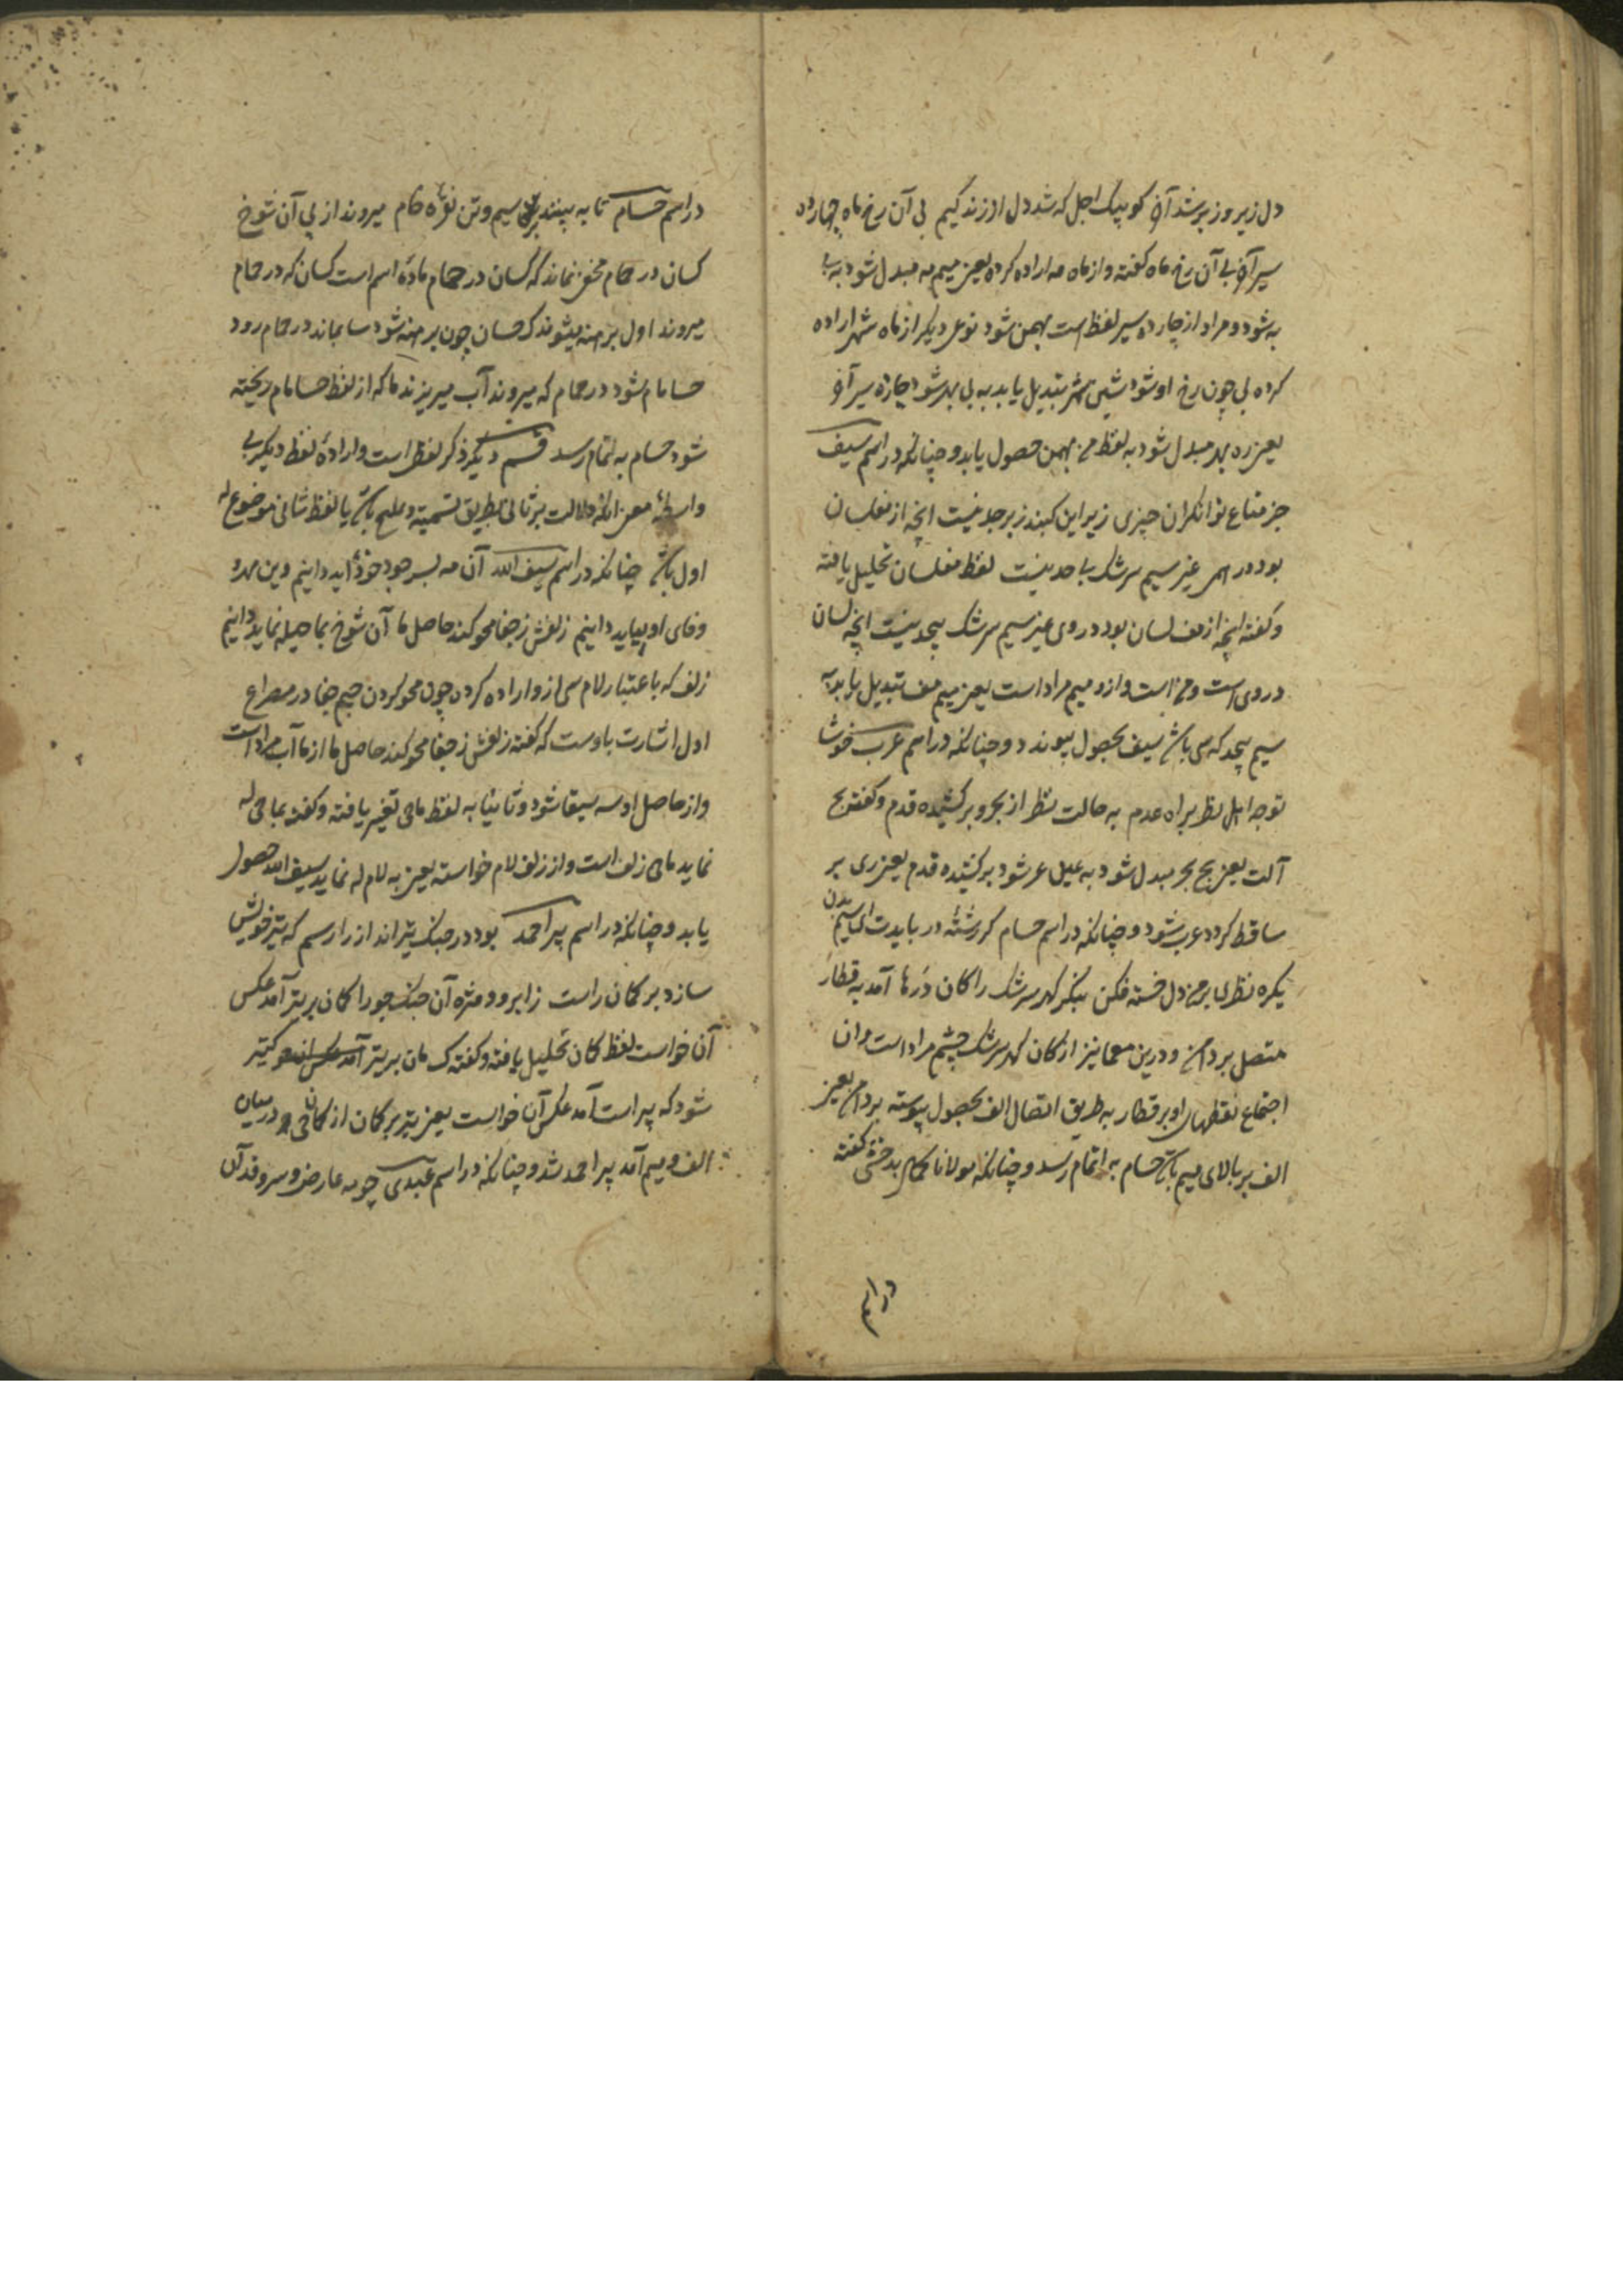 دل زیر و زبر شد آخر کو پیک اجل که شد دل از زندگیم بی آن رخ ماه چارده
سیر آخر بی آن رخ ماه گفته و از ماه مه اراده کرده یعنی میم مه مبدل شود به بی
به شود و مراد از چارده سیر لفظ است بهمن شود نوعی دیگر از ماه شهر اراده
کرده بی چون رخ او شود شین شهر تبدیل یابد به بی بهر شود چارده سیر آخر
یعنی ره بهر مبدل شود به لفظ من بهمن حصول یابد و چنانکه در اسم سیف
جز متاع توانگران چیزی زیر این گنبد زبرجد نیست آنچه از مفلسان
بود در غیر سیم سرشک بیحد نیست لفظ مفلسان تحلیل یافته
و گفته آنچه از مف لسان بود در وی غیر سیم سرشک بیحد نیست آنچه لسان
در وی است و از و میم مراد است یعنی میم مف تبدیل یابد به
سیم بیحد که سی باشد سیف بحصول پیوندد و چنانکه در اسم عرب خوشا
توجه اهل نظر براه عدم به حالت نظر از بحر و بر کشیده قدم و گفته بح
آلت یعنی بح بحر مبدل شود به عر شود بر کشیده قدم یعنی ری بر
ساقط گردد عرب شود و چنانکه در اسم حسام گر رشته در بایدت ای سیم بدن
یکره نظری بر من دل خسته فکن بنگر گهر سرشک را کان درها آمد به قطار
متصل بر دامن و درین معما نیز از کان گهر سرشک چشم مراد است و از
اجتماع نقطهای او بر قطار به طریق اتصال الف بحصول پیوسته بر دامن یعنی
الف بر بالای میم باشد حسام به اتمام رسد و چنانکه مولانا بدخشی گفته
در اسم
در اسم حسام تا به بینند بر سیم و تن نقره خام میروند از پی آن شوخ
کسان در حمام مخفی نماند که کسان در حمام ماده اسم است کسان که در حمام
میروند اول برهنه میشوند ک حسان چون برهنه شود سا بماند در حمام رود
حسامام شود در حمام که میروند آب میریزند ما که از لفظ حسامام ریخته
شود حسام به اتمام رسد قسم دیگر ذکر لفظ است و اراده لفظ دیگر بی
واسطه معنی آنکه دلالت بر ثانی بطریق تسمیه و تلمیح باشد یا لفظ ثانی موضوع له
اول باشد چنانکه در اسم سیف الله آن مه بسر وجود خود آید دانیم وین مهر و
وفای او بپاید دانیم زلفش ز جفا محو کند حاصل ما آن شوخ بما حیله نماید دانیم
زلف که باعتبار لام سی از و اراده کردن چون محو کردن جیم جفا در مصراع
اول اشارت باوست که گفته زلفش ز جفا محو کند حاصل ما از ما آب مراد است
و از حاصل او سه سیفا شود و ثانیا به لفظ ماحی تغییر یافته و گفته بماحی له
نماید ماحی زلف است و از زلف لام خواسته یعنی به لام له نماید سیف الله حصول
یابد و چنانکه در اسم پیر احمد بود در جنگ تیرانداز را رسم که تیر خویش
سازد بر کمان راست ز ابرو و مژه آن جنگ جو را کمان بر تیر آمد عکس
آن خواست لفظ کمان تحلیل یافته و گفته ک مان بر تیر آمد
شود که پیر است آمد عکس آن خواست یعنی تیر بر کمان از کمان حی در میان
الف و میم آمد پیر احمد شد و چنانکه در اسم عبدی چو مه عارض و سرو قد آن